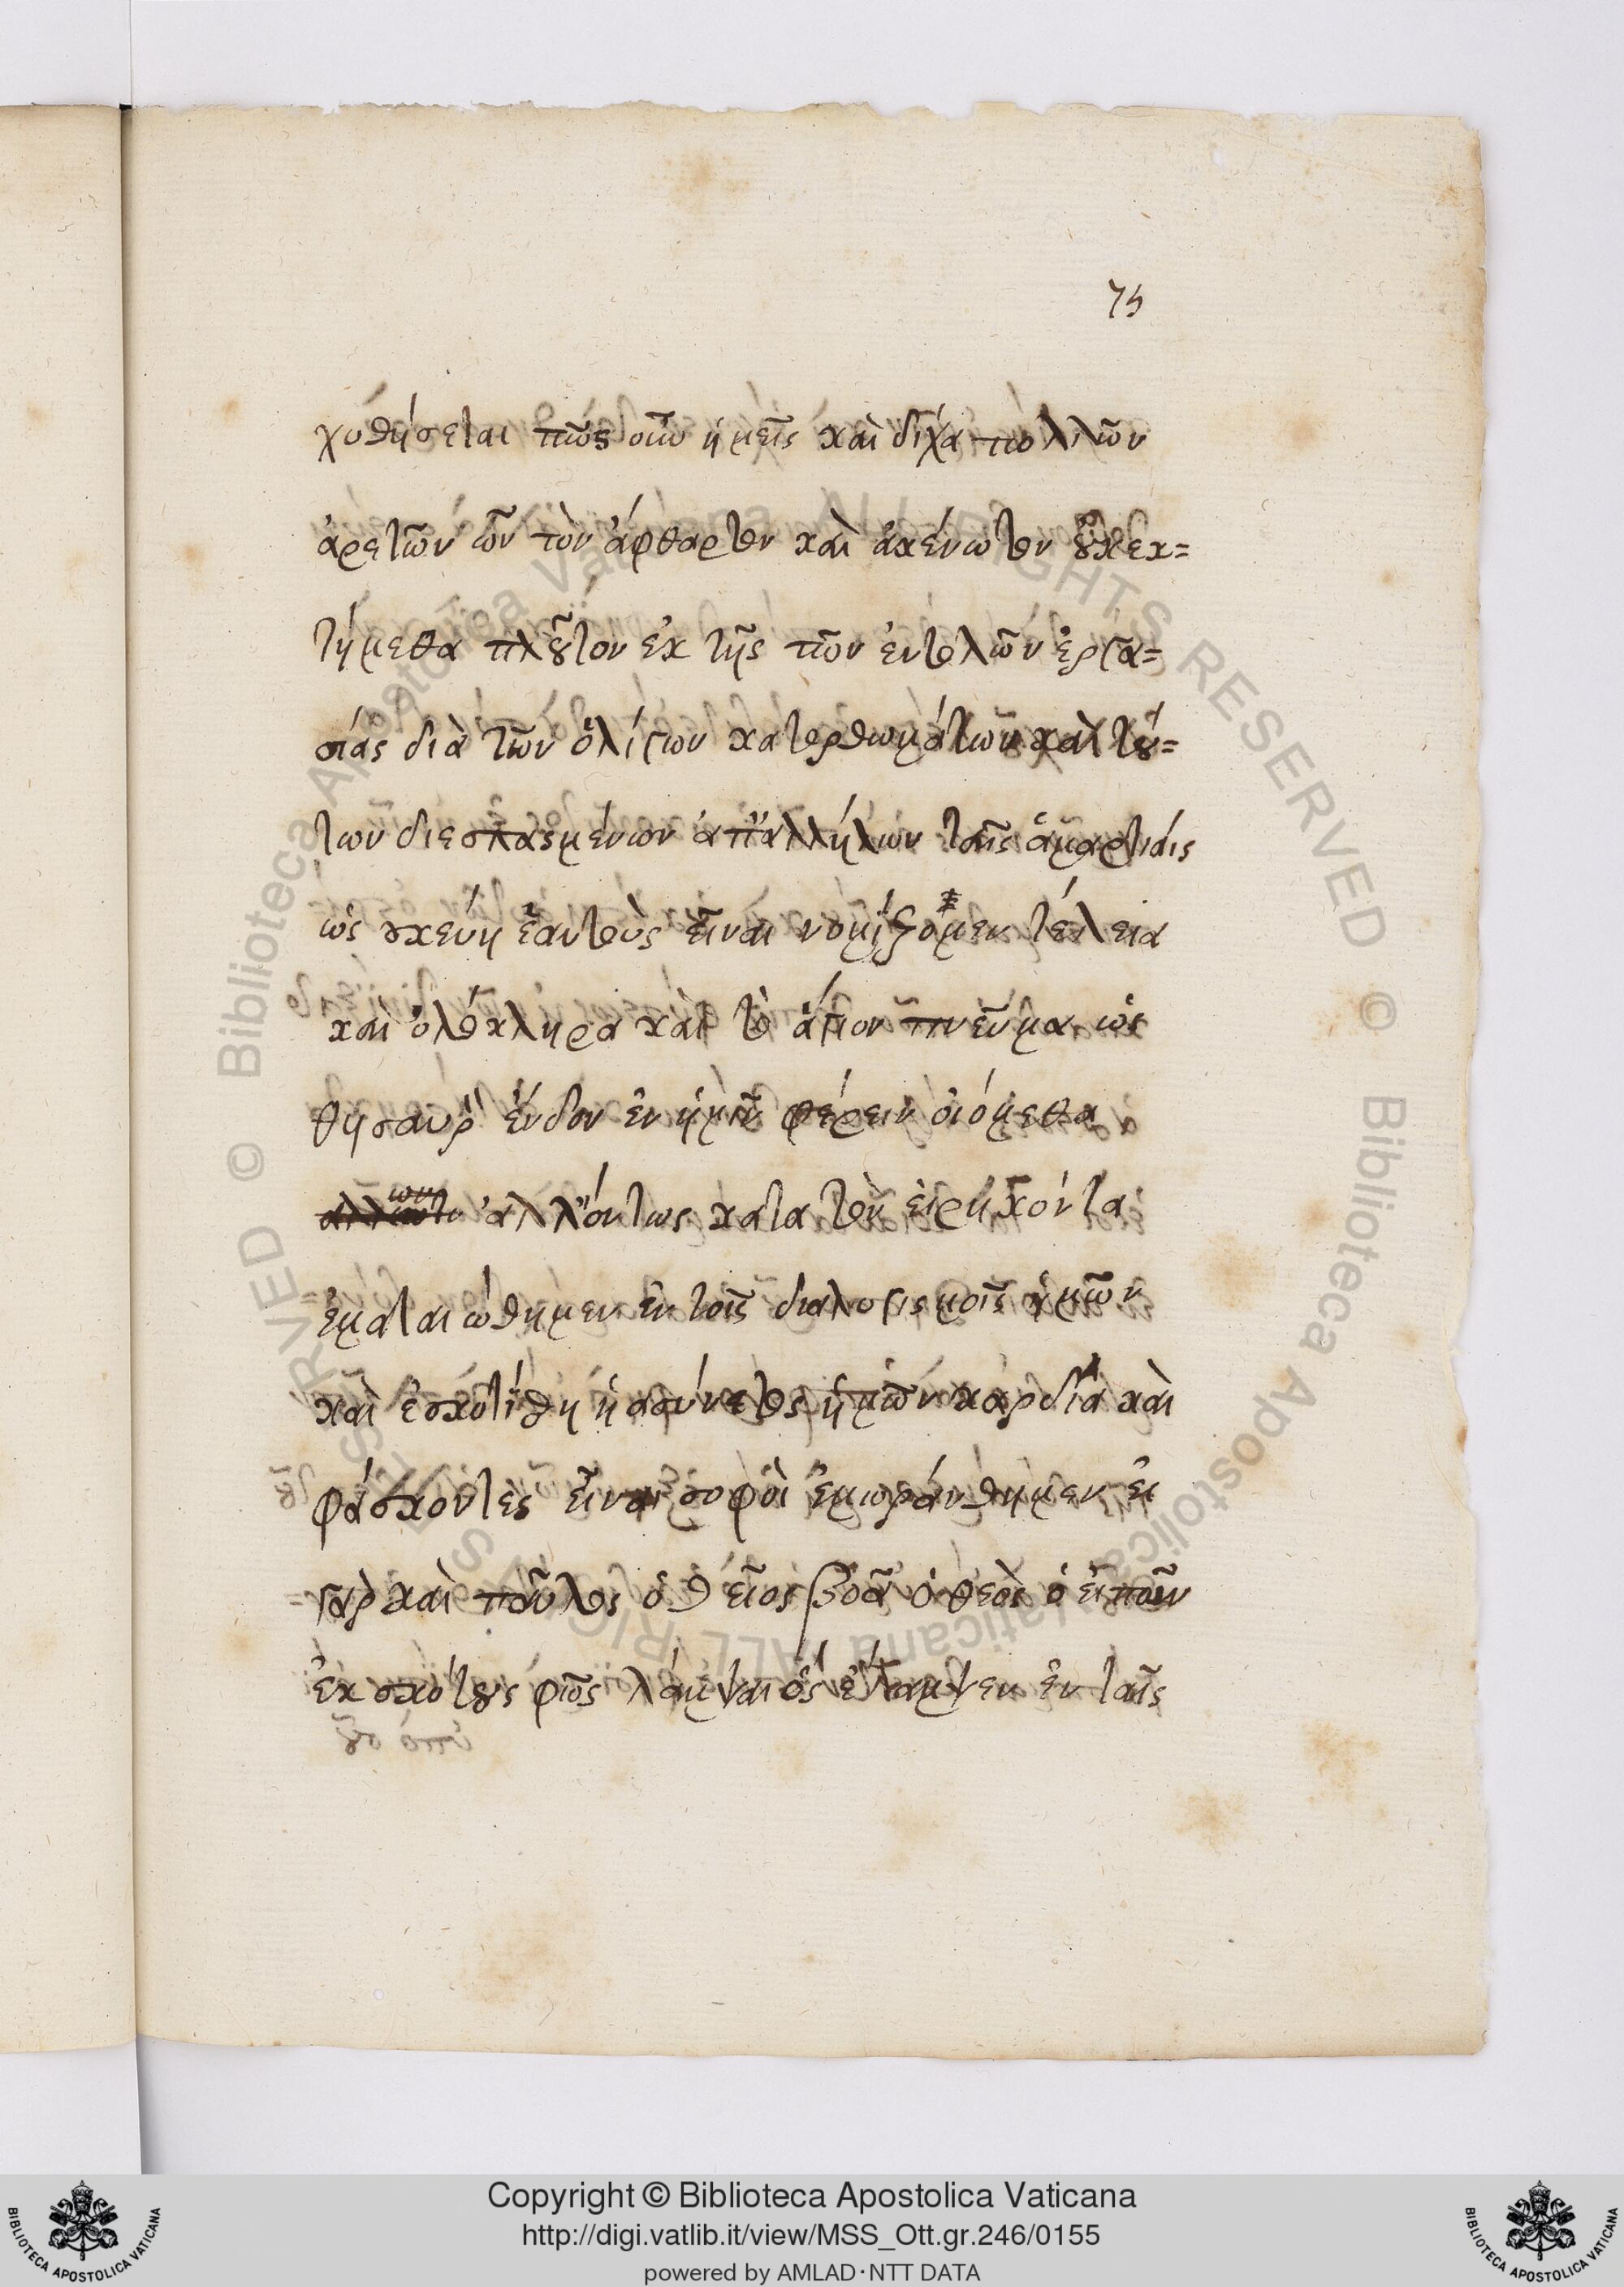 75
χυθήσεται πῶς οὖν ἡμεῖς καὶ δίχα πολλῶν
ἀρετῶν ὧν τὸν ἄφθαρτον καὶ ἀκένωτον οὐ κεκ=
τήμεθα πλοῦτον ἐκ τῆς τῶν ἐντολῶν ἐργα=
σίας διὰ τῶν ὀλίγων κατορθωμάτων καὶ τού=
των διεσπασμένων ἀπ' ἀλλήλων ταῖς ἁμαρτίαις
ὡς σκεύη ἑαυτοὺς εἶναι νομίζομεν τέλεια
καὶ ὁλόκληρα καὶ τὸ ἅγιον πνεῦμα ὡς
θησαυρ' ἔνδον ἐν ἡμῖν φέρειν οἰόμεθα
ἀλλ' ὄντως κατα τὸν εἰρηκότα
ἐματαιώθημεν ἐν τοῖς διαλογισμοῖς ἡμῶν
καὶ ἐσκοτίσθη ἡ ἀσύνετος ἡμῶν καρδία καὶ
φάσκοντες εἶναι σοφοὶ ἐμωράνθημεν εἰ
γὰρ καὶ παῦλος ὁ θεῖος βοᾶ ὁ θεὸς ὁ εἰπὼν
ἐκ σκότους φῶς λάμψαι ὃς ἔλαμψεν ἐν ταῖς
Copyright © Biblioteca Apostolica Vaticana
http://digi.vatlib.it/view/MSS_Ott.gr.246/0155
powered by AMLAD·NTT DATA
BIBLIOTECA APOSTOLICA VATICANA
BIBLIOTECA APOSTOLICA VATICANA
© Biblioteca Apostolica Vaticana ALL RIGHTS RESERVED © Biblioteca Apostolica Vaticana ALL RIGHTS RESERVED